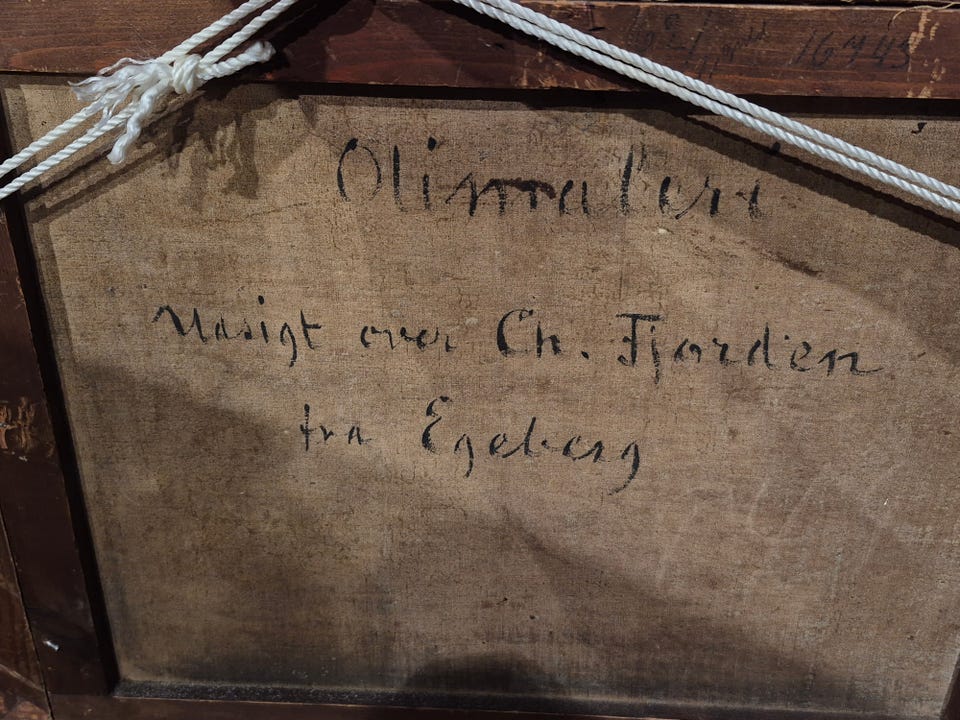 16745
Olimaleri
Udsigt over Ch. Fjorden
fra Egeberg